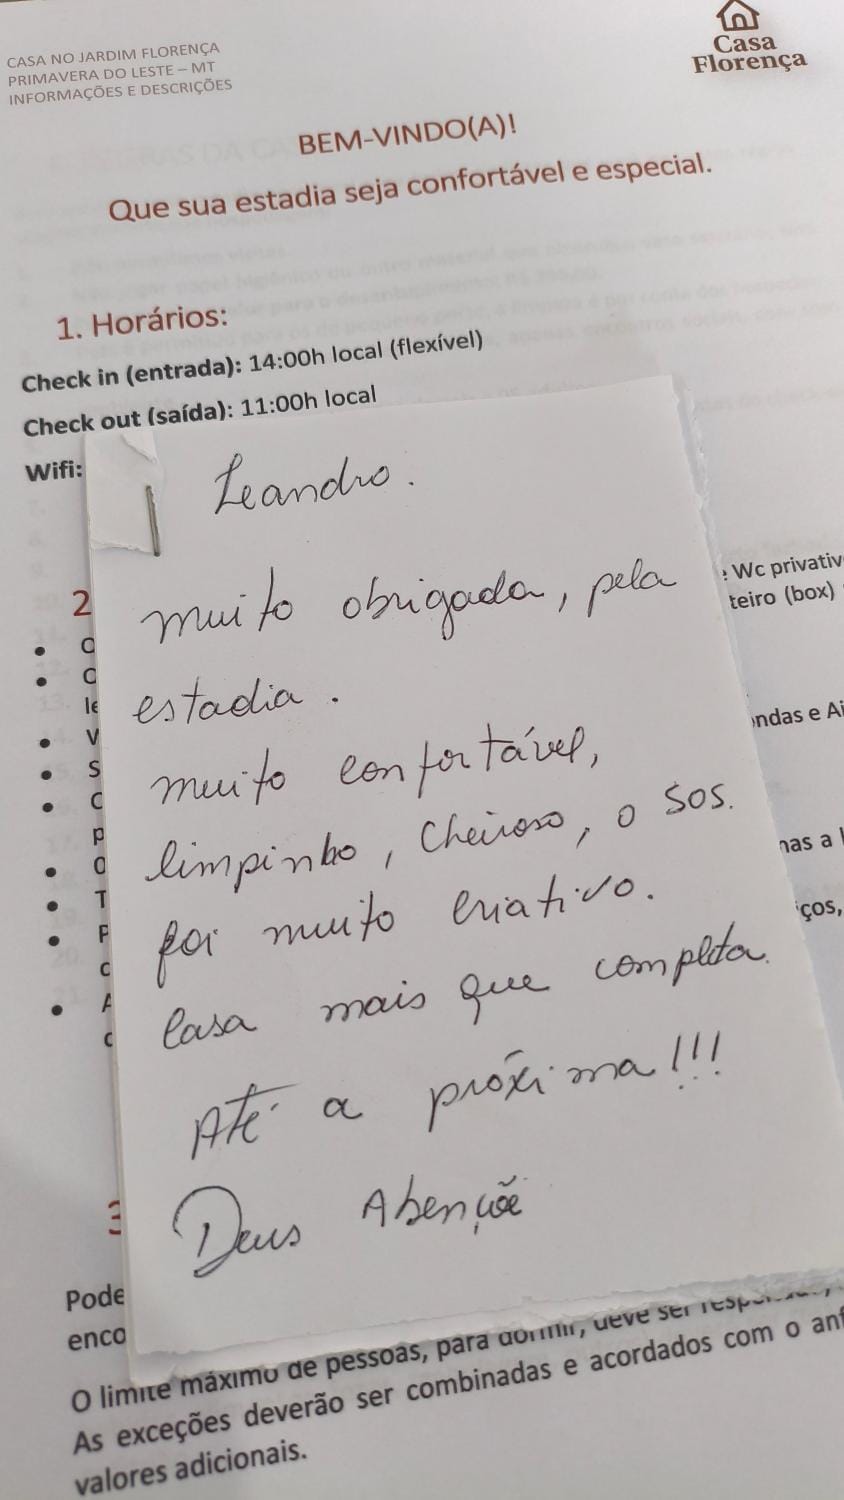 CASA NO JARDIM FLORENÇA
PRIMAVERA DO LESTE – MT
INFORMAÇÕES E DESCRIÇÕES
Casa
Florença
BEM-VINDO(A)!
Que sua estadia seja confortável e especial.
1. Horários:
Check in (entrada): 14:00h local (flexível)
Check out (saída): 11:00h local
Wifi:
Leandro.
muito obrigada, pela
estadia.
muito confortável,
limpinho, Cheiroso, o SOS.
foi muito criativo.
Casa mais que completa.
Até a próxima!!!
Deus Abençõe
2
: Wc privativ
teiro (box)
ndas e Ai
nas a l
ços,
3
Pode
enco
O limite máximo de pessoas, para dormir, deve ser
As exceções deverão ser combinadas e acordados com o anf
valores adicionais.